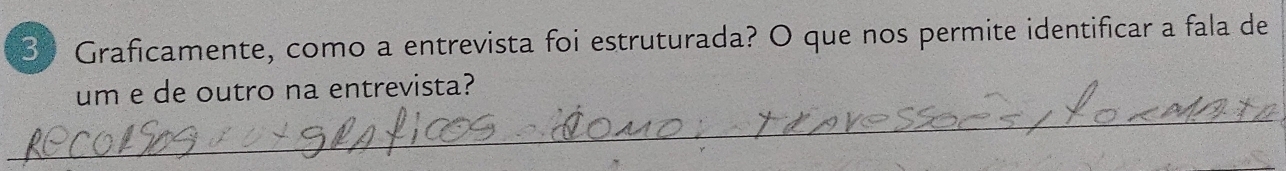 3 Graficamente, como a entrevista foi estruturada? O que nos permite identificar a fala de
um e de outro na entrevista?
RECORSOS gRAficOS como: tRAvessões, foRMAtA